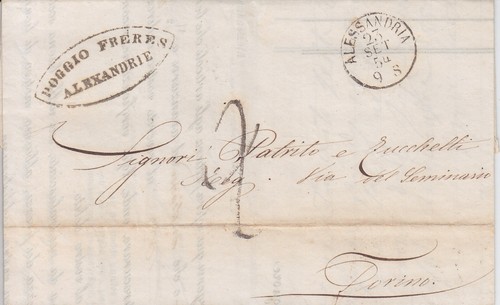 POGGIO FRERES
ALEXANDRIE
ALESSANDRIA
23
SET
54
9 S
2
Signori Patrito e Zucchelli
Neg. Via del Seminario
Torino.